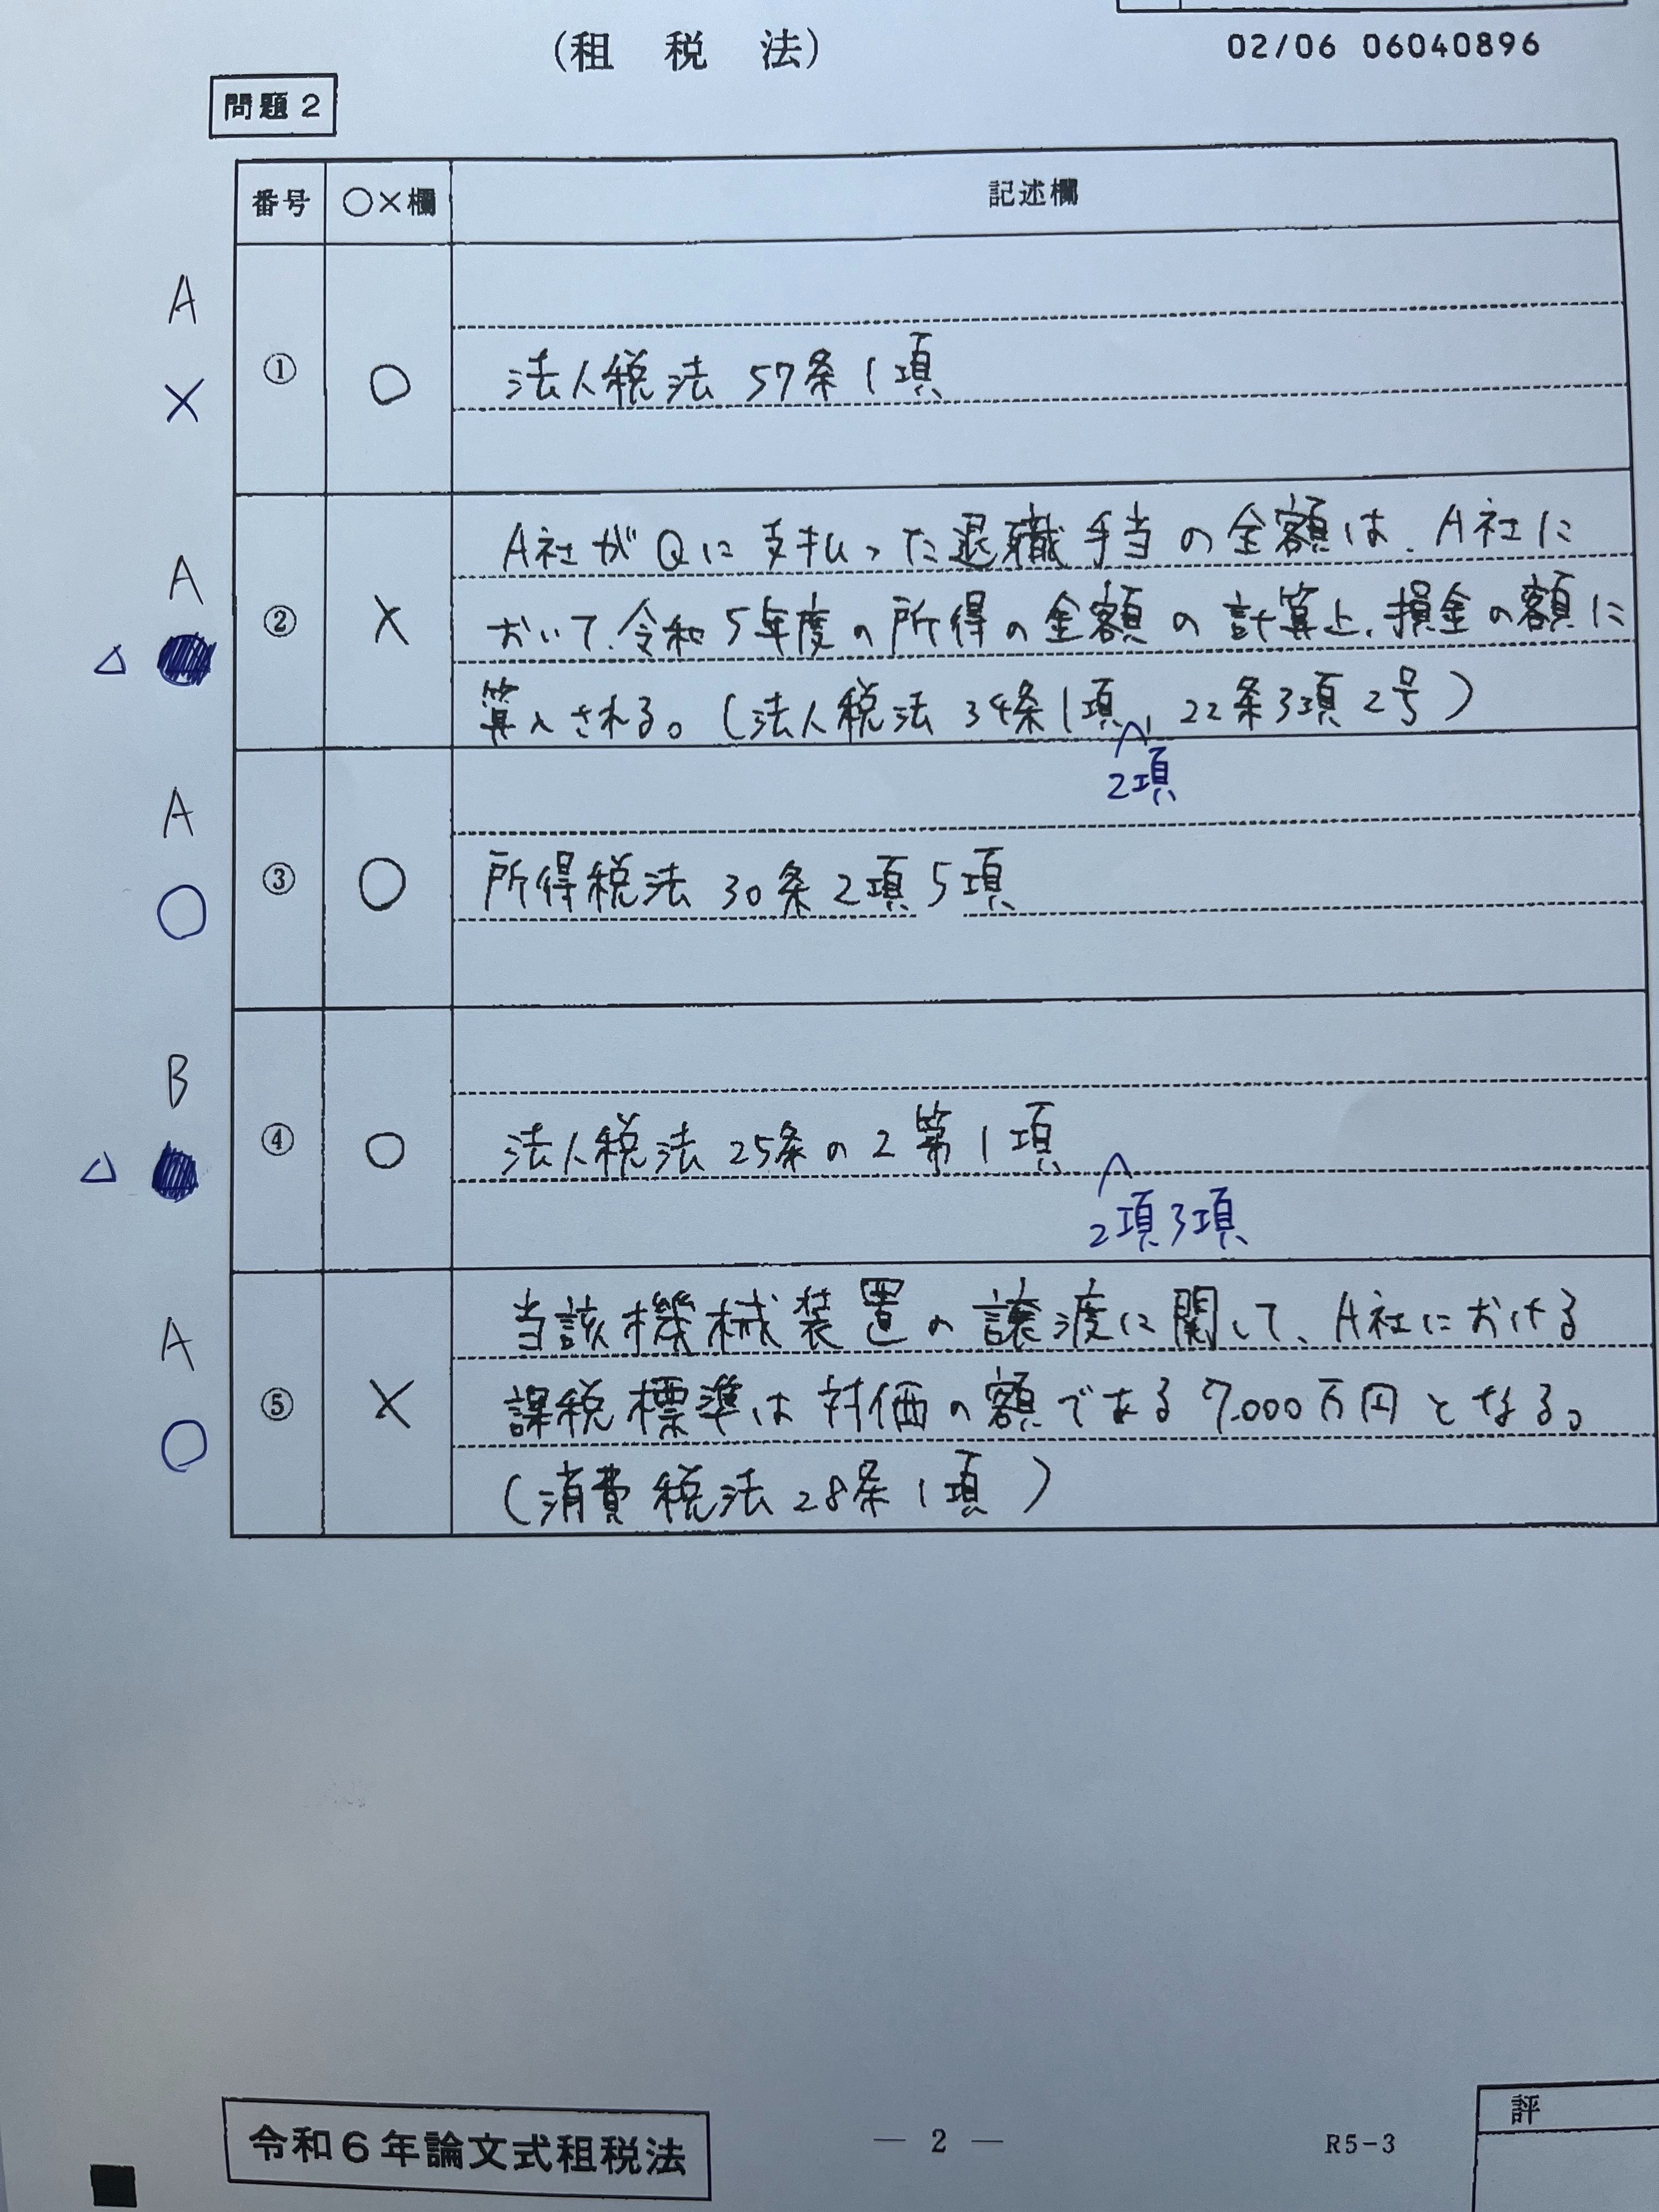 （租　税　法）
02/06 06040896
問題2
番号 ○×欄 記述欄
A
×
① ○ 法人税法 57条1項
A
△
② × A社がQに支払った退職手当の金額は、A社に
おいて、令和5年度の所得の金額の計算上、損金の額に
算入される。（法人税法 34条1項、22条3項2号）
2項
A
○
③ ○ 所得税法 30条2項5項
B
△
④ ○ 法人税法 25条の2第1項
2項3項
A
○
⑤ × 当該機械装置の譲渡に関して、A社における
課税標準は対価の額である7,000万円となる。
（消費税法28条1項）
令和6年論文式租税法
— 2 —
R5-3
評